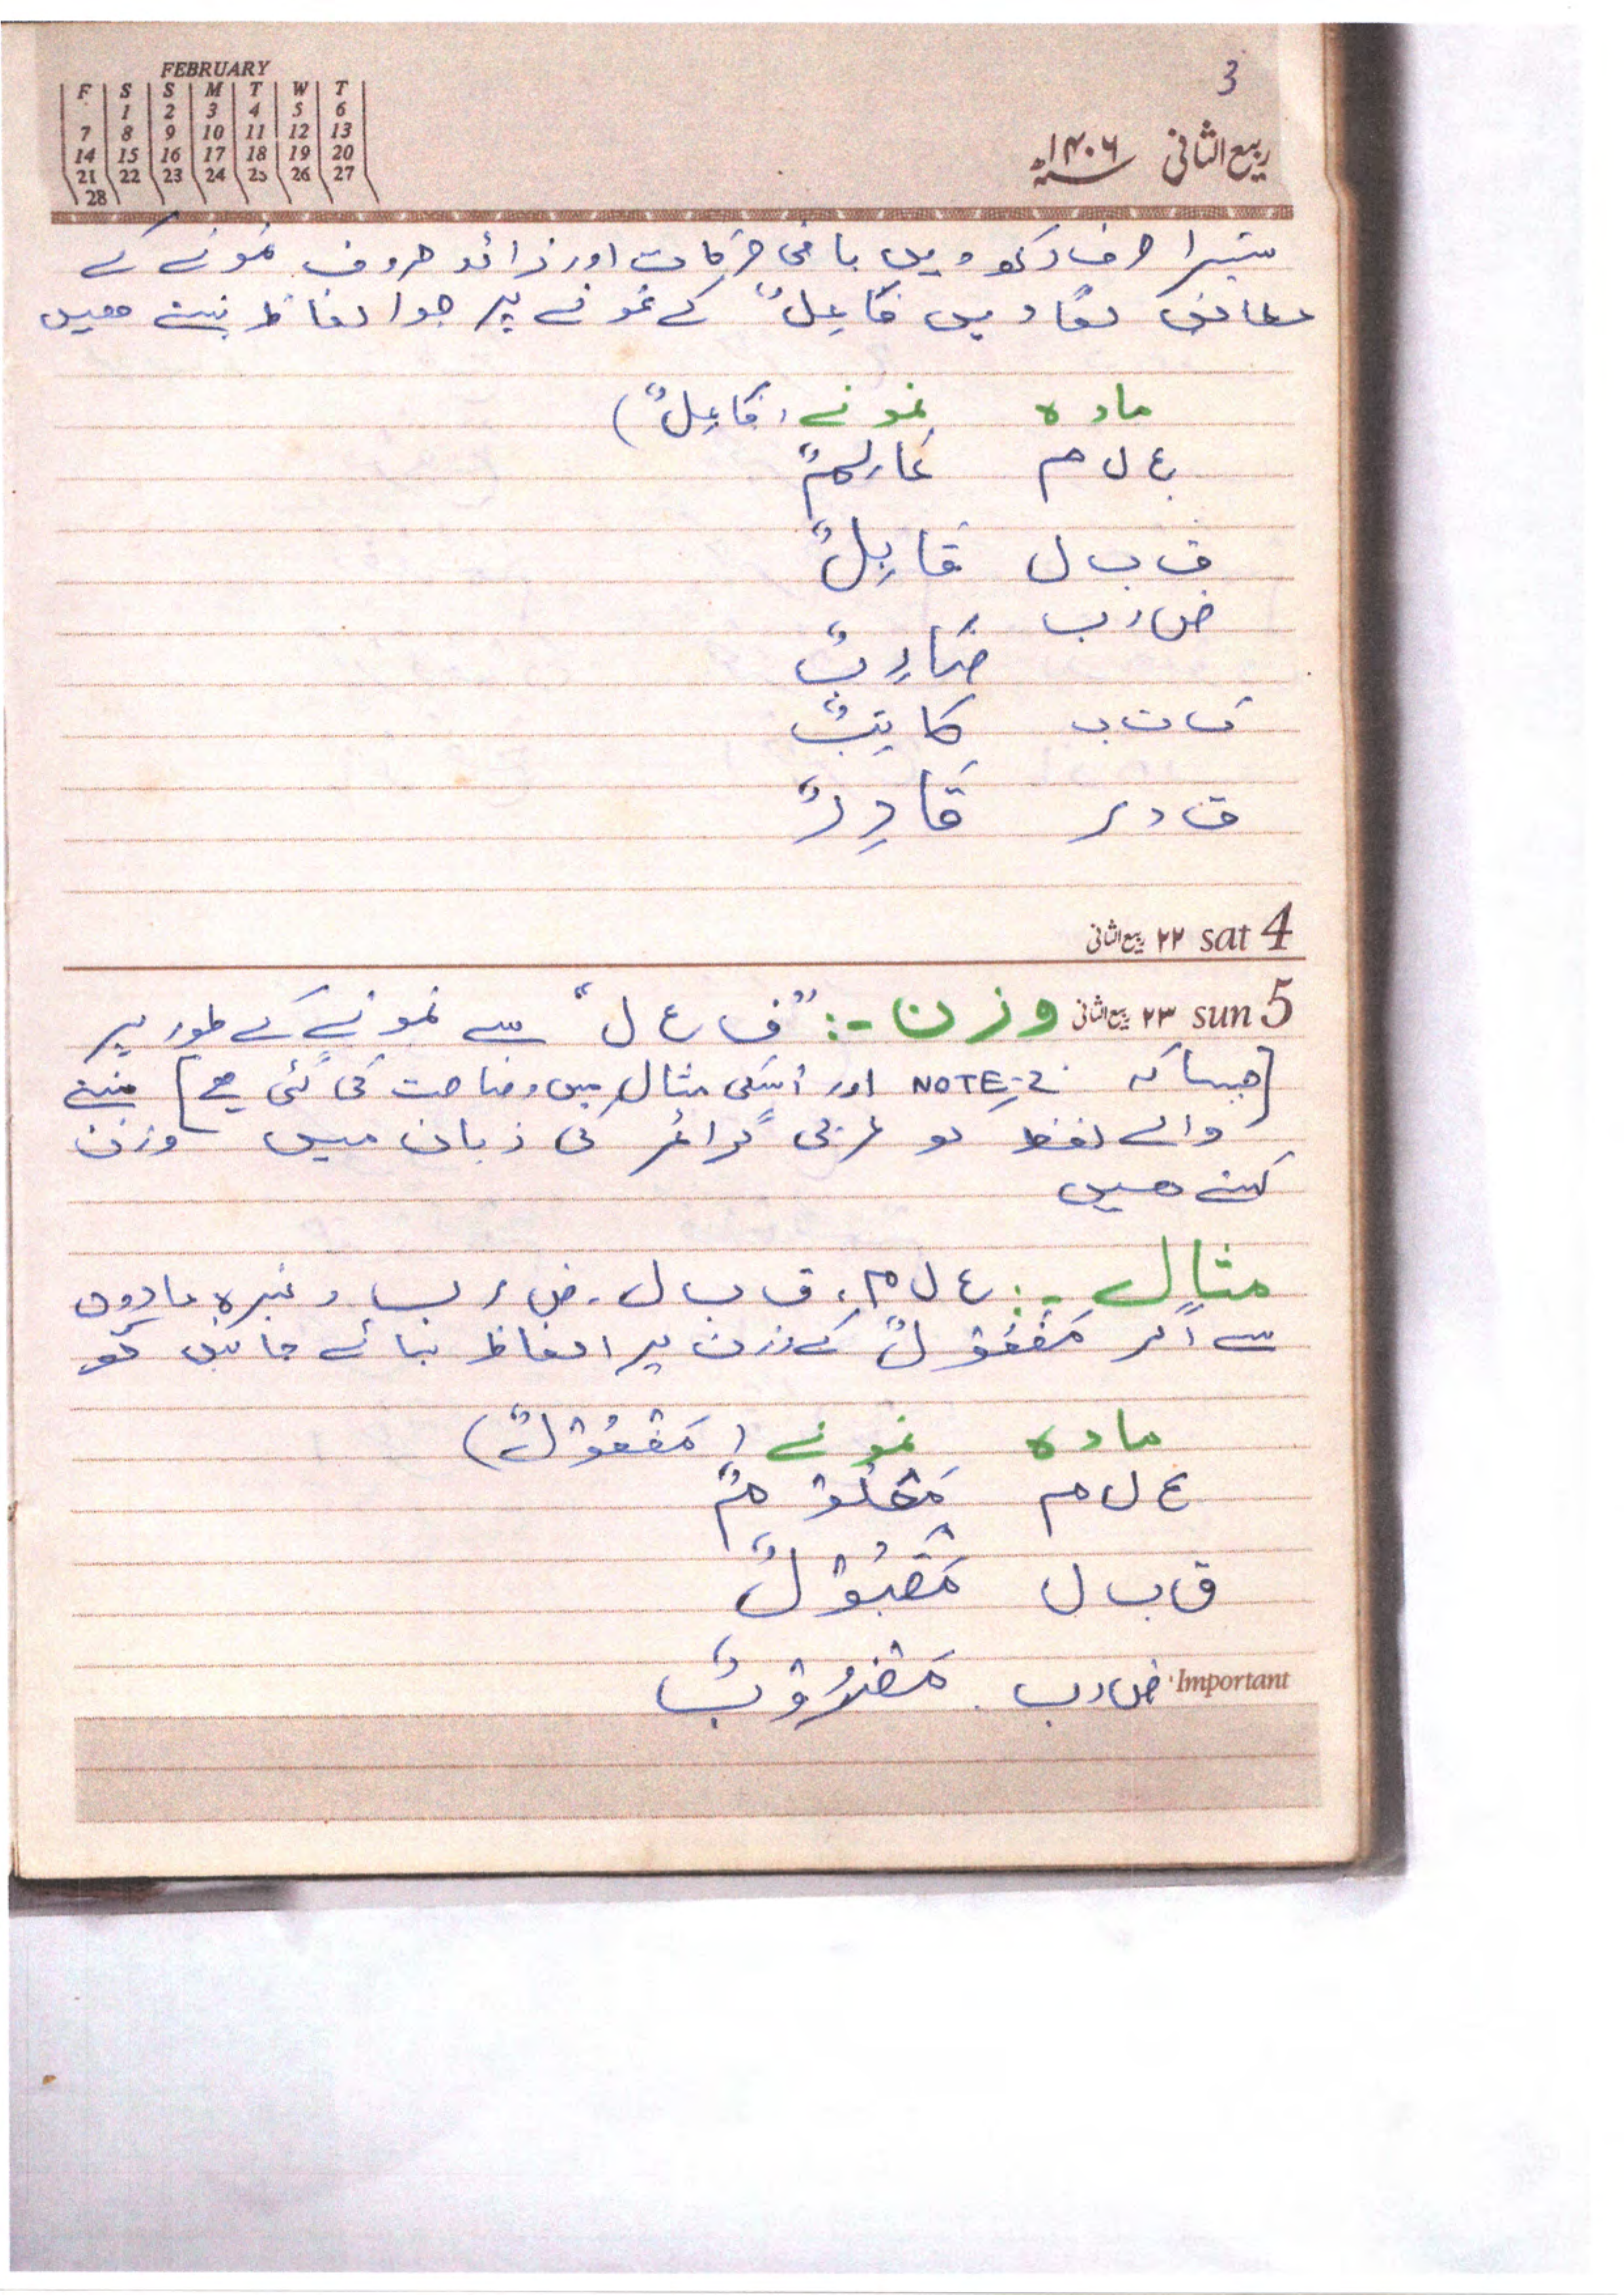 3
ربیع الثانی ۱۴۰۶ھ
FEBRUARY
F S S M T W T
1 2 3 4 5 6
7 8 9 10 11 12 13
14 15 16 17 18 19 20
21 22 23 24 25 26 27
28
تیسرا حرف رکھ دیں باقی حرکات اور زائد حروف نمونے کے
مطابق لگا دیں فَاعِلٌ کے نمونے پر جو الفاظ بنتے ھیں
مادہ نمونے (فَاعِلٌ)
ع ل م عَالِمٌ
ق ب ل قَابِلٌ
ض ر ب
ضَارِبٌ
ک ت ب کَاتِبٌ
ق د ر قَادِرٌ
sat 4 ۲۲ ربیع الثانی
sun 5 ۲۳ ربیع الثانی وزن :- "ف ع ل" سے نمونے کے طور پر
[جیسا کہ NOTE-2 اور اسکی مثال میں وضاحت کی گئی ھے] بننے
والے لفظ کو عربی گرائمر کی زبان میں وزن
کہتے ھیں
مثال :- ع ل م، ق ب ل، ض ر ب وغیرہ مادوں
سے اگر مَفْعُوْلٌ کے وزن پر الفاظ بنائے جائیں تو
مادہ نمونے (مَفْعُوْلٌ)
ع ل م مَعْلُوْمٌ
ق ب ل مَقْبُوْلٌ
Important ض ر ب مَضْرُوْبٌ